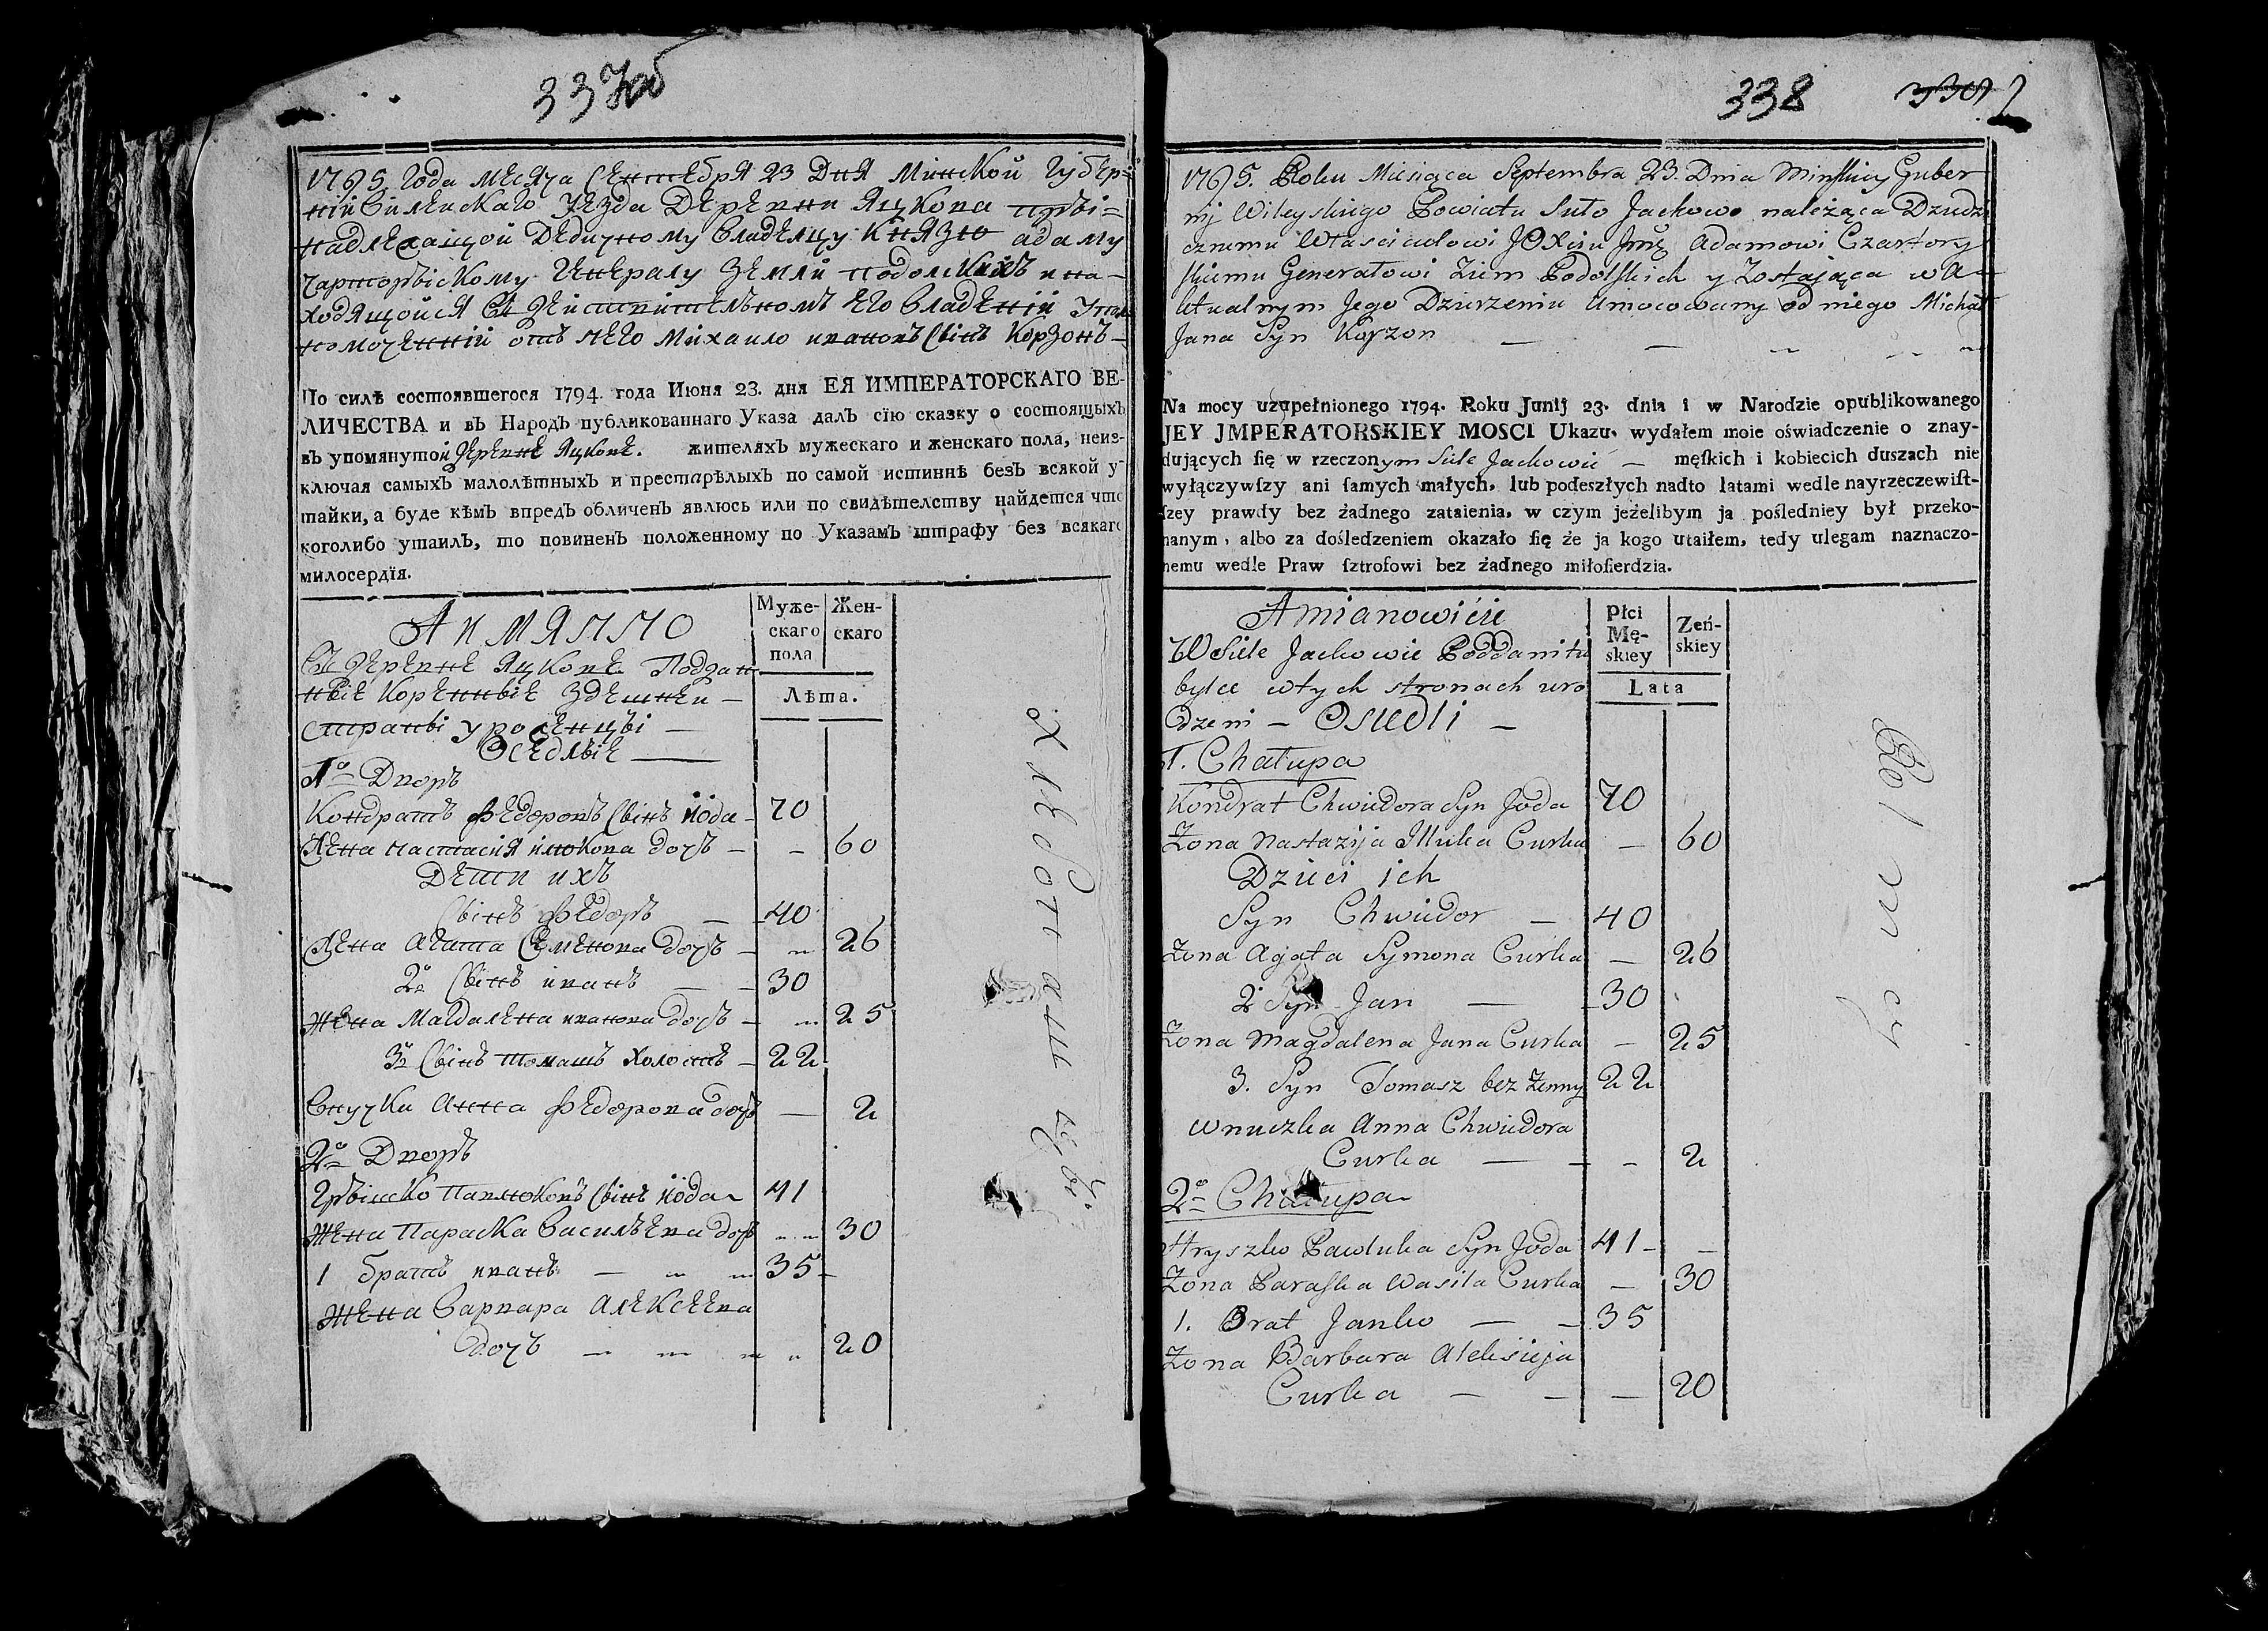 337об
1795. Года месяца Сентебря 23 Дня Минской Губер=
нiи Вилейскаго Уезда Деревни Яцкова приві=
надлежащой Дедичному владелцу Князю адаму
чарторвіскому Генералу Земли подолскихъ и на-
ходящойся въ действителномъ его владенiи Упол
номоченнiй отъ него михаило ивановъ Свінъ Корзонъ -
По силѣ состоявшегося 1794. года Июня 23. дня ЕЯ ИМПЕРАТОРСКАГО ВЕ-
ЛИЧЕСТВА и въ Народъ публикованнаго Указа далъ сїю сказку о состоящыхъ
въ упомянутой Деревне Яцкове. жителяхъ мужескаго и женскаго пола, неиз-
ключая самыхъ малолѣтныхъ и престарѣлыхъ по самой истиннѣ безъ всякой у-
тайки, а буде кѣмъ впредъ обличенъ явлюсь или по свидѣтелству найдется что
коголибо утаилъ, то повиненъ положенному по Указамъ штрафу без всякаго
милосердїя.
А имянно
Муже-
скаго
пола
Жен-
скаго
Лѣта.
Въ Деревне Яцкове Поддан
нвіе Коренввіе здешней -
странві уроженцві —
Оседлвіе —
1о Дворъ
Кондратъ Федоровъ Свінъ іода - 70
Жена настасия илюкова дочъ - - 60
Дети ихъ
Свінъ Федоръ — 40
Жена Агата Семенова дочъ - 26
2о Свінъ иванъ — 30
Жена Магдалена иванова дочъ - 25
3о Свінъ томашъ холостъ - 22
Внучки Анна Федорова дочъ — 2
2о Дворъ
Грвішко Павлюковъ Свінъ іода - 41
Жена Параска василъева дочъ 30
1 братъ иванъ — 35 -
Жена Варвара Алексеева
дочъ — 20
338
1795. Roku Miesiąca Septembra 23. Dnia Minskiey Guber
nij Wileyskiego Powiatu Sioło Jackowo należąca Dziedzi
cznemu Własciciełowi JOXciu Jmć Adamowi Czartory
skiemu Generałowi Ziem Podolskich y Zostająca w A-
ktualnym Jego Dzierzeniu Umocowany od niego Michał
Jana Syn Korzon —
Na mocy uzupełnionego 1794. Roku Junij 23. dnia i w Narodzie opublikowanego
JEY JMPERATORSKIEY MOSCI Ukazu, wydałem moie oświadczenie o znay-
dujących ſię w rzeczonym Siele Jackowie — męſkich i kobiecich duszach nie
wyłączywſzy ani ſamych małych, lub podeszłych nadto latami wedle nayrzeczewiſt-
ſzey prawdy bez żadnego zataienia, w czym jeżelibym ja poſledniey był przeko-
nanym, albo za doſledzeniem okazało ſię że ja kogo utaiłem, tedy ulegam naznaczo-
nemu wedle Praw ſztrofowi bez żadnego miłoſierdzia.
Amianowicie
płci
Mę-
skiey
Zeń-
skiey
Lata
W Siele Jackowie Poddani tu
bylce wtych stronach uro
dzeni - Osiedli -
1. Chałupa
Kondrat Chwiedora Syn Joda 70
Zona Nastazija Illuka Curka — 60
Dzieci ich
Syn Chwiedor — 40
Zona Agata Symona Curka — 26
2 Syn Jan — 30
Zona Magdalena Jana Curka — 25
3. Syn Tomasz bez Zenny 22
Wnuczka Anna Chwiedora
Curka — - - 2
2о Chałupa
Hryszko Pawluka Syn Joda 41 - -
Zona Paraska Wasila Curka — 30
1. Brat Janko — - 35
Zona Barbara Aleksieja
Curka — - — 20